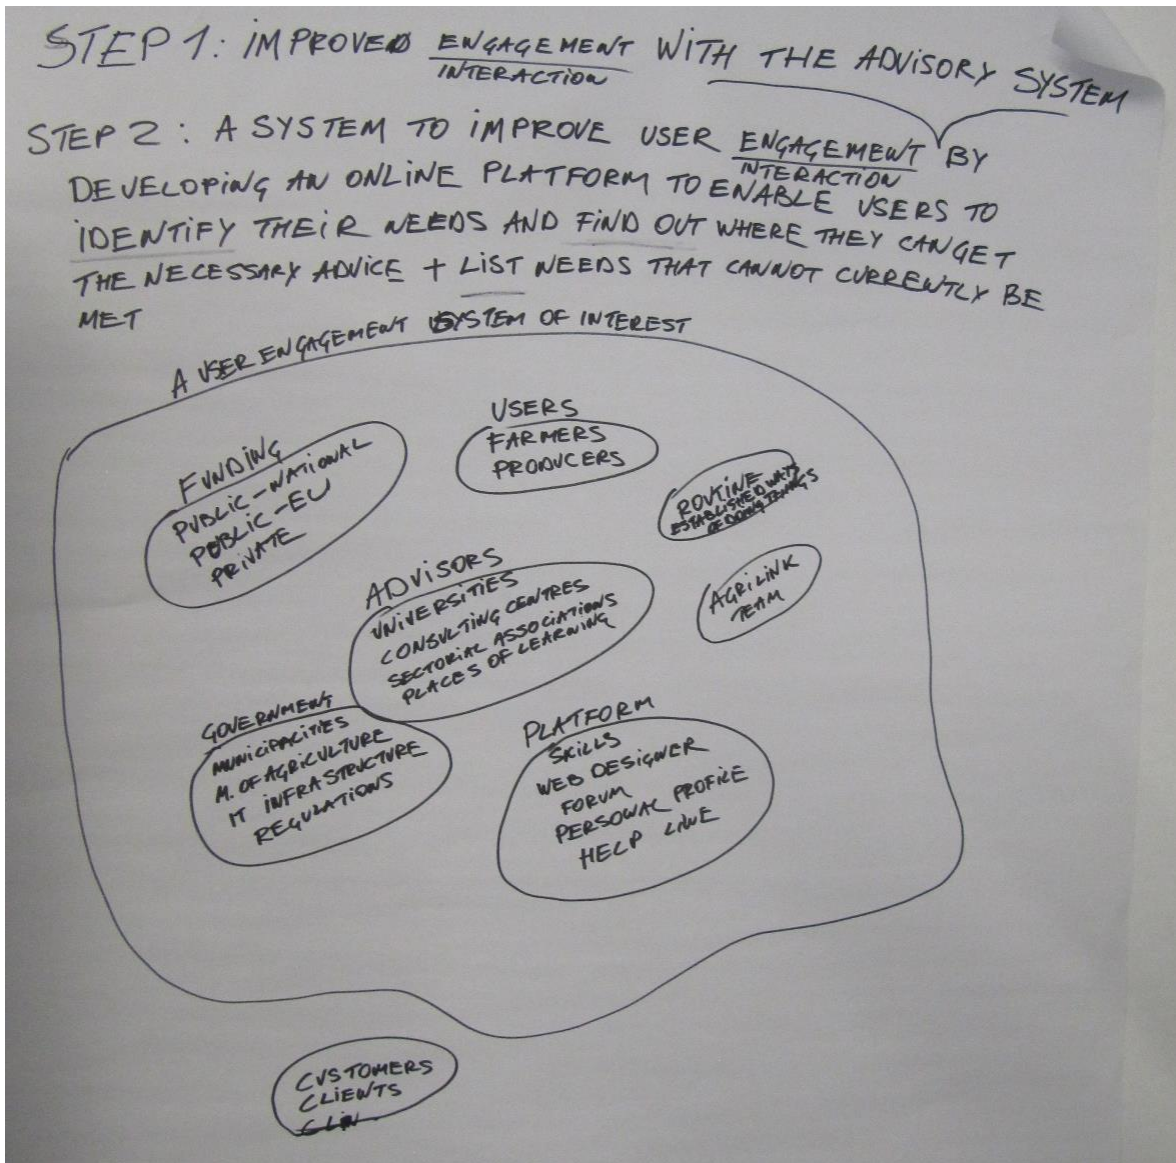 STEP 1: IMPROVED ENGAGEMENT WITH THE ADVISORY SYSTEM
INTERACTION
STEP 2: A SYSTEM TO IMPROVE USER ENGAGEMENT BY
INTERACTION
DEVELOPING AN ONLINE PLATFORM TO ENABLE USERS TO
IDENTIFY THEIR NEEDS AND FIND OUT WHERE THEY CAN GET
THE NECESSARY ADVICE + LIST NEEDS THAT CANNOT CURRENTLY BE
MET
A USER ENGAGEMENT SYSTEM OF INTEREST
FUNDING
PUBLIC-NATIONAL
PUBLIC-EU
PRIVATE
USERS
FARMERS
PRODUCERS
ROUTINE
ESTABLISHED WAYS
OF DOING THINGS
AGRILINK
TEAM
ADVISORS
UNIVERSITIES
CONSULTING CENTRES
SECTORIAL ASSOCIATIONS
PLACES OF LEARNING
GOVERNMENT
MUNICIPALITIES
M. OF AGRICULTURE
IT INFRASTRUCTURE
REGULATIONS
PLATFORM
SKILLS
WEB DESIGNER
FORUM
PERSONAL PROFILE
HELP LINE
CUSTOMERS
CLIENTS